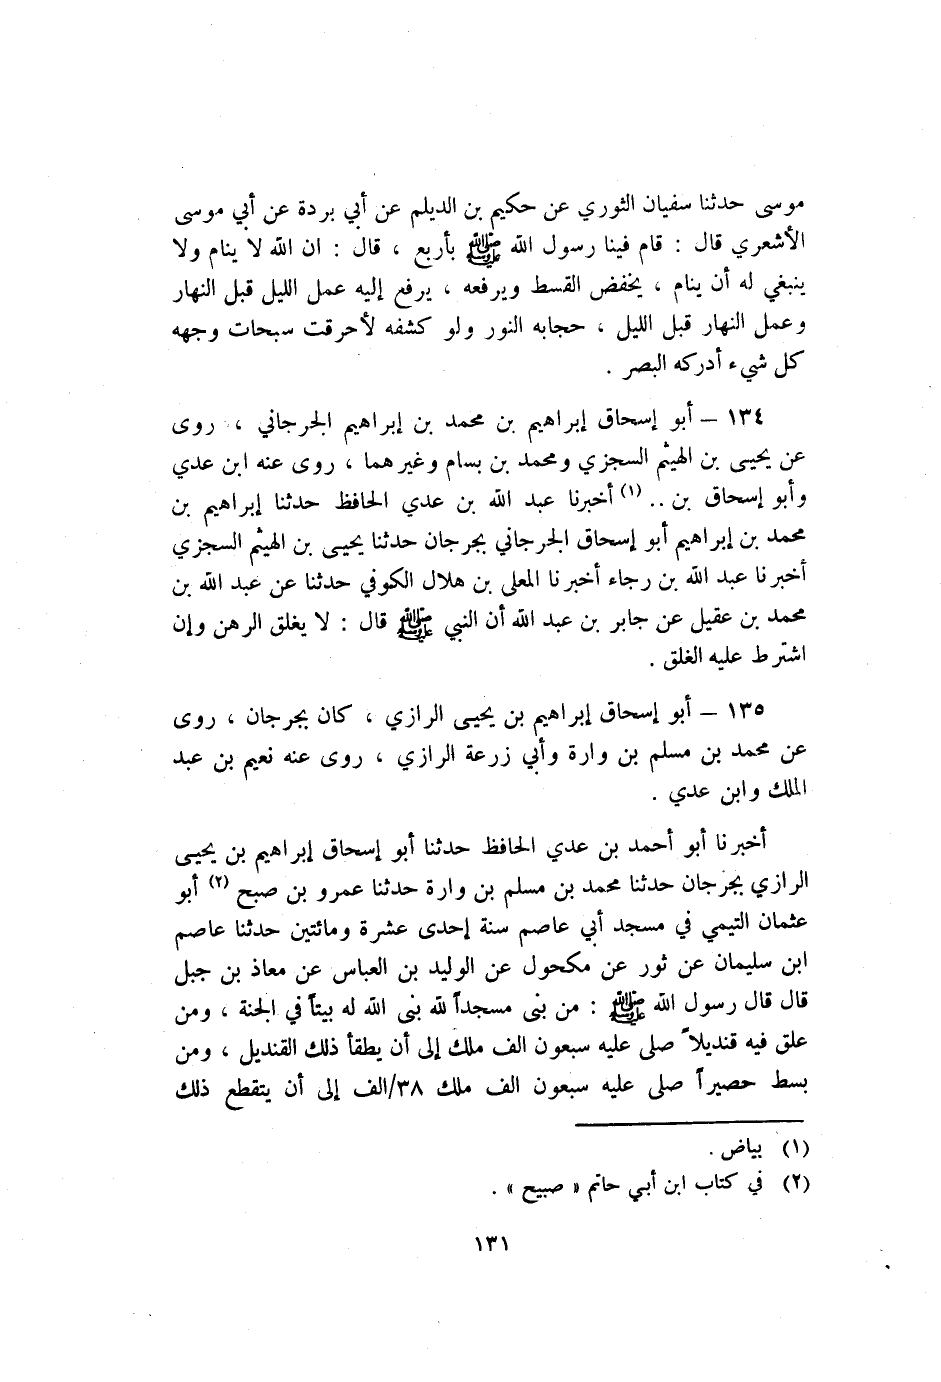 موسى حدثنا سفيان الثوري عن حكيم بن الديلم عن أبي بردة عن أبي موسى
الأشعري قال : قام فينا رسول الله ﷺ بأربع ، قال : ان الله لا ينام ولا
ينبغي له أن ينام ، يخفض القسط ويرفعه ، يرفع إليه عمل الليل قبل النهار
وعمل النهار قبل الليل ، حجابه النور ولو كشفه لأحرقت سبحات وجهه
كل شيء أدركه البصر .
١٣٤ – أبو إسحاق إبراهيم بن محمد بن إبراهيم الجرجاني ، روى
عن يحيى بن الهيثم السجزي ومحمد بن بسام وغيرهما ، روى عنه ابن عدي
وأبو إسحاق بن .. (١) أخبرنا عبد الله بن عدي الحافظ حدثنا إبراهيم بن
محمد بن إبراهيم أبو إسحاق الجرجاني بجرجان حدثنا يحيى بن الهيثم السجزي
أخبرنا عبد الله بن رجاء أخبرنا المعلى بن هلال الكوفي حدثنا عن عبد الله بن
محمد بن عقيل عن جابر بن عبد الله أن النبي ﷺ قال : لا يغلق الرهن وإن
اشترط عليه الغلق .
١٣٥ – أبو إسحاق إبراهيم بن يحيى الرازي ، كان بجرجان ، روى
عن محمد بن مسلم بن وارة وأبي زرعة الرازي ، روى عنه نعيم بن عبد
الملك وابن عدي .
أخبرنا أبو أحمد بن عدي الحافظ حدثنا أبو إسحاق إبراهيم بن يحيى
الرازي بجرجان حدثنا محمد بن مسلم بن وارة حدثنا عمرو بن صبح (٢) أبو
عثمان التيمي في مسجد أبي عاصم سنة إحدى عشرة ومائتين حدثنا عاصم
ابن سليمان عن ثور عن مكحول عن الوليد بن العباس عن معاذ بن جبل
قال قال رسول الله ﷺ : من بنى مسجداً لله بنى الله له بيتاً في الجنة ، ومن
علق فيه قنديلاً صلى عليه سبعون الف ملك إلى أن يطقأ ذلك القنديل ، ومن
بسط حصيراً صلى عليه سبعون الف ملك ٣٨/الف إلى أن يتقطع ذلك
(١) بياض .
(٢) في كتاب ابن أبي حاتم « صبيح » .
١٣١